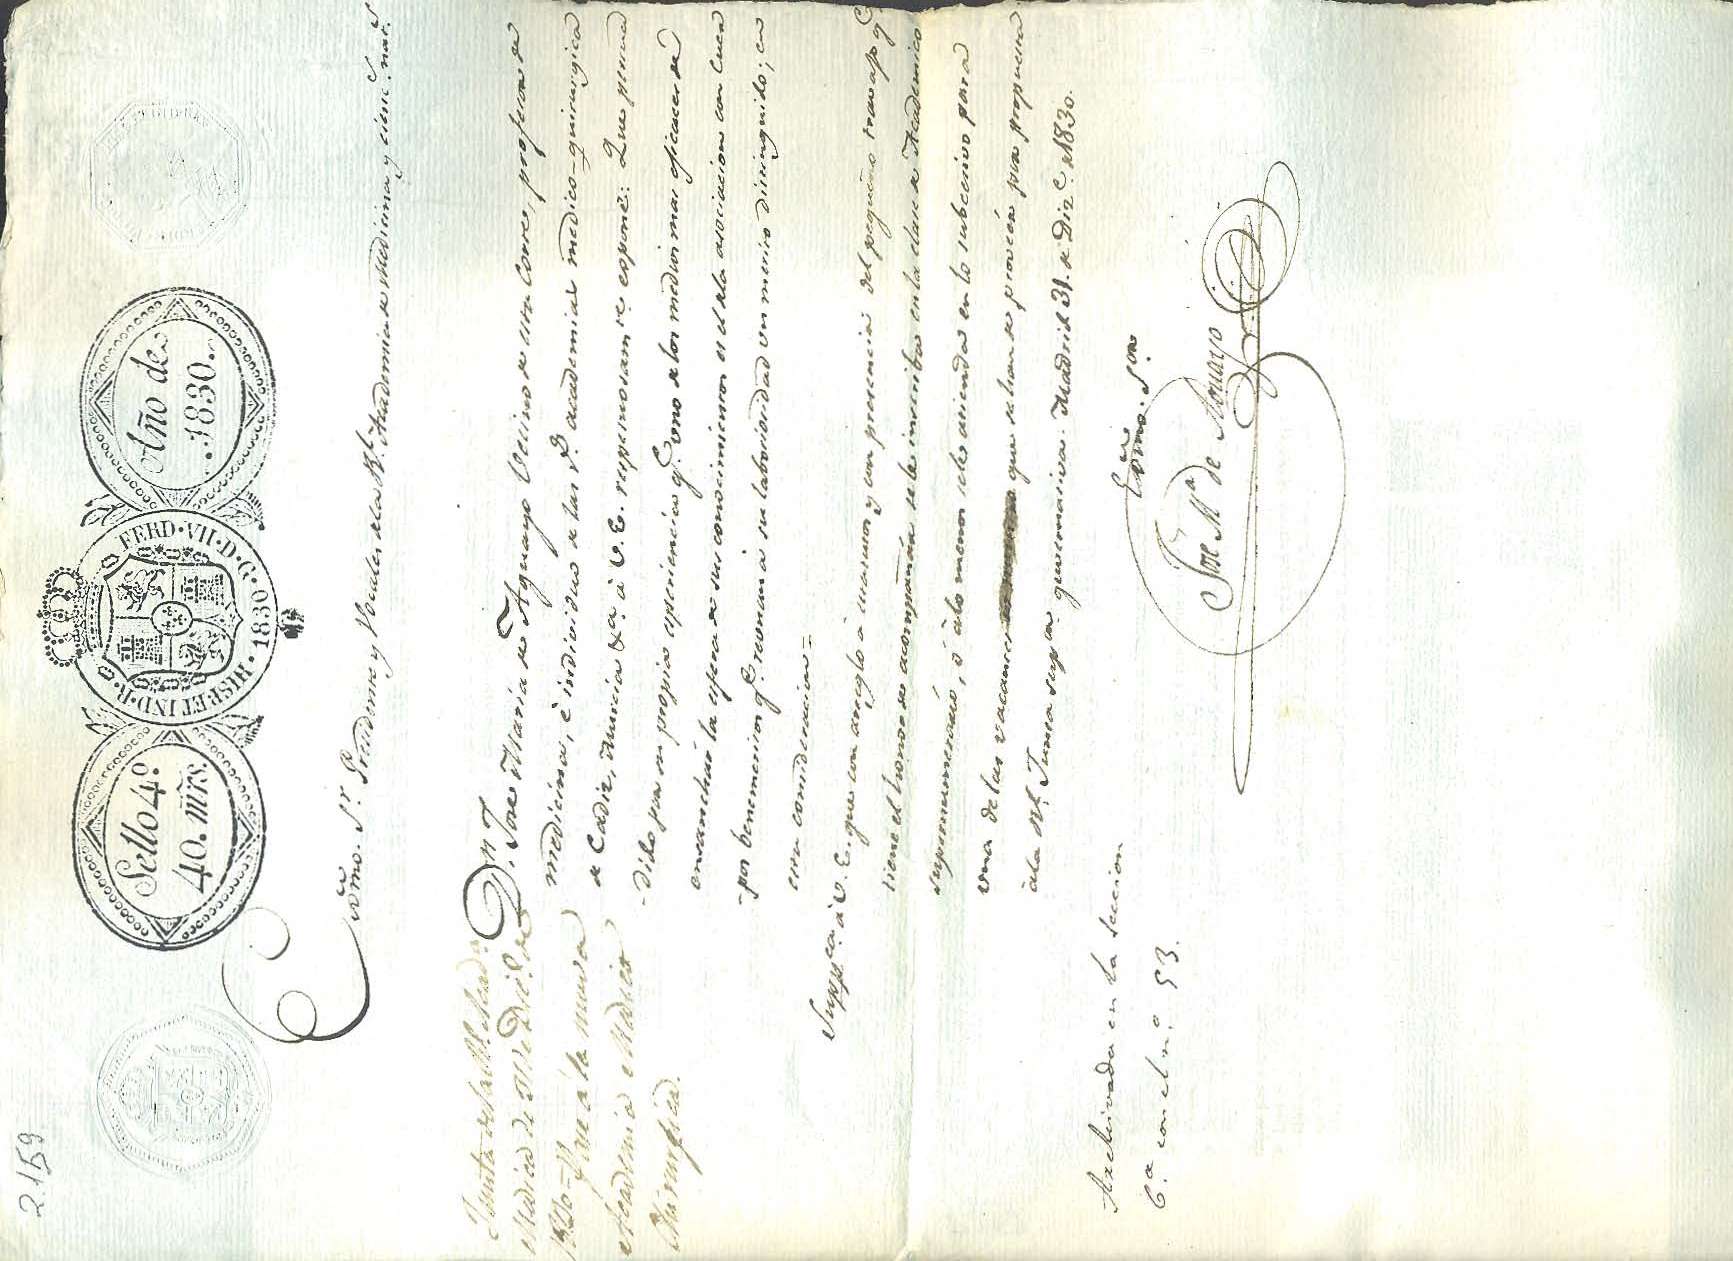 2.159
Sello 4º.
40. mrs.
HISP. ET IND. R. FERD. VII. D. G. 1830
Año de
.1830.
Exmo. Sr. Presidente y Vocales de la Rl. Academia de Medicina y cienc. nats.
Junta de la Rl. Acad.ª
Medica de 31 de Dic.e de
1830 = Pase a la nueva
Academia de Medicª
Chirurgica.
Dn. Jose Maria de Aguayo vecino de esta Corte, profesor de
medicina, è individuo de las Rs. academias medico-quirurgica
de Cadiz, Murcia &ª. à V. E. respetuosam.te espone: Que persua
-dido por su propia esperiencia q.e uno de los medios mas eficaces de
ensanchar la esfera de sus conocimientos es el de la asociacion con Cuer
-pos benemeritos q.e reunan à su laboriosidad un merito distinguido; en
esta consideracion =
Supp.ca à V. E. que con arreglo à estatutos y con presencia del pequeño trabajo q.e
tiene el honor de acompañar se le inscriba en la clase de Academico
supernumerario, ò à lo menos se le atienda en lo subcesivo para
una de las vacantes que se han de proveér por propuesta
à la Rl. Junta sup.or gubernativa. Madrid 31. de Diz.e de 1830.
Exmo. Sor.
Jose Mª de Aguayo
Archivada en la seccion
6.ª con el n.º 53.